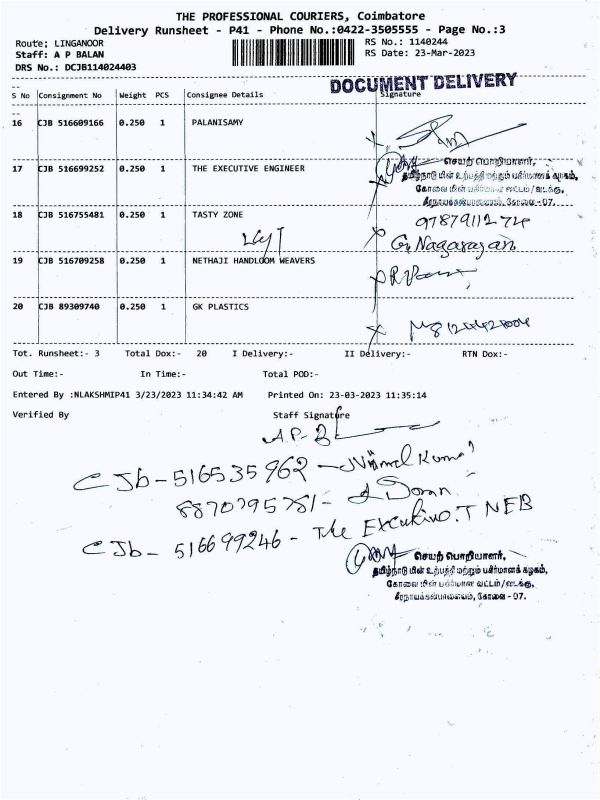 THE PROFESSIONAL COURIERS, Coimbatore
Delivery Runsheet - P41 - Phone No.:0422-3505555 - Page No.:3
Route: LINGANOOR
RS No.: 1140244
Staff: A P BALAN
RS Date: 23-Mar-2023
DRS No.: DCJB114024403
DOCUMENT DELIVERY
S No Consignment No Weight PCS Consignee Details Signature
16 CJB 516609166 0.250 1 PALANISAMY
17 CJB 516699252 0.250 1 THE EXECUTIVE ENGINEER
செயற் பொறியாளர்,
தமிழ்நாடு மின் உற்பத்தி மற்றும் பகிர்மானக் கழகம்,
கோவை மின் பகிர்மான வட்டம்/வடக்கு,
சீரநாயக்கன்பாளையம், கோவை - 07.
18 CJB 516755481 0.250 1 TASTY ZONE
9787911274
G. Nagarajan
19 CJB 516709258 0.250 1 NETHAJI HANDLOOM WEAVERS
20 CJB 89309740 0.250 1 GK PLASTICS
Tot. Runsheet:- 3 Total Dox:- 20 I Delivery:- II Delivery:- RTN Dox:-
Out Time:- In Time:- Total POD:-
Entered By :NLAKSHMIP41 3/23/2023 11:34:42 AM Printed On: 23-03-2023 11:35:14
Verified By Staff Signature
A.P. B
CJb - 516535962 - Nirmal Kumar
8870795781 -
CJb - 516699246 - The Excutive. TNEB
செயற் பொறியாளர்,
தமிழ்நாடு மின் உற்பத்தி மற்றும் பகிர்மானக் கழகம்,
கோவை மின் பகிர்மான வட்டம்/வடக்கு,
சீரநாயக்கன்பாளையம், கோவை - 07.